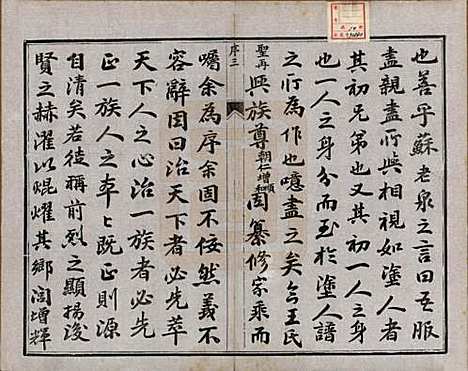 也善乎蘇老泉之言曰吾服
盡親盡所與相視如塗人者
其初兄弟也又其初一人之身
也一人之身分而至於塗人譜
之所為作也噫盡之矣今王氏
聖再與族尊朝仁增順等因纂修家乘而
序三
囑余為序余固不佞然義不
容辭因曰治天下者必先萃
天下人之心治一族者必先
正一族人之率上既正則源
自清矣若徒稱前烈之顯揚後
賢之赫濯以焜燿其鄉閭增輝